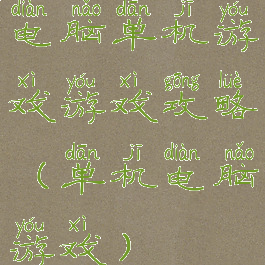 diàn nǎo dān jī yóu
电脑单机游
xì yóu xì gōng lüè
戏游戏攻略
dān jī diàn nǎo
（单机电脑
yóu xì
游戏）